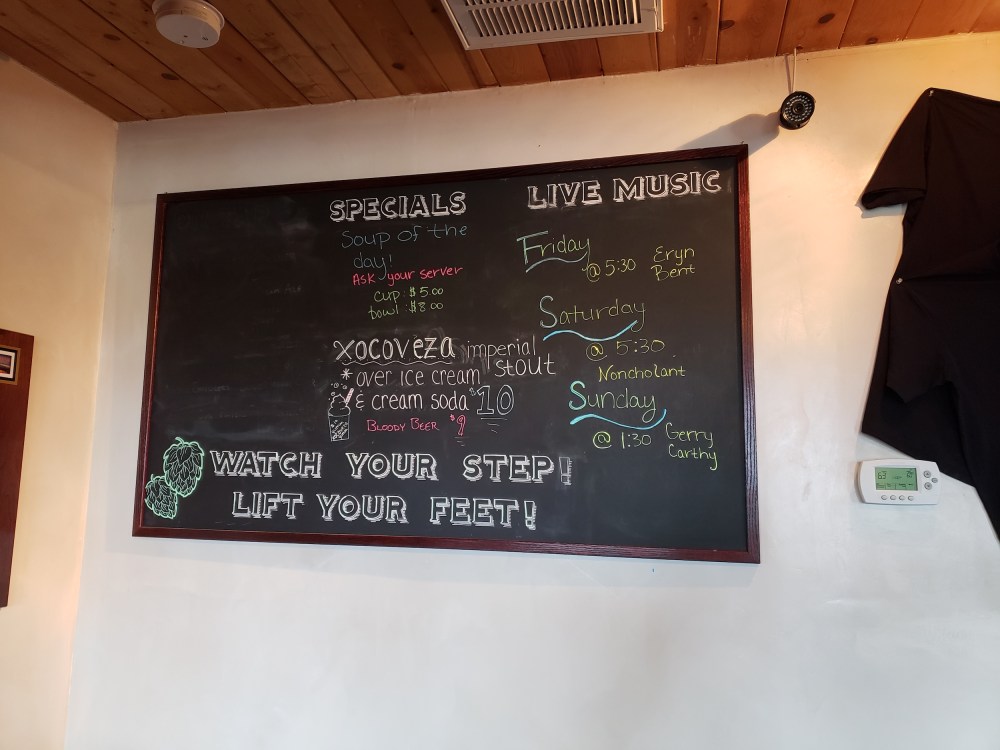 SPECIALS
Soup of the
day!
Ask your server
cup: $5.00
bowl: $8.00
xocoveza imperial
stout
* over ice cream
& cream soda $10
Bloody Beer $9
LIVE MUSIC
Friday
@ 5:30 Eryn
Bent
Saturday
@ 5:30
Noncholant
Sunday
@ 1:30 Gerry
Carthy
WATCH YOUR STEP!
LIFT YOUR FEET!
63